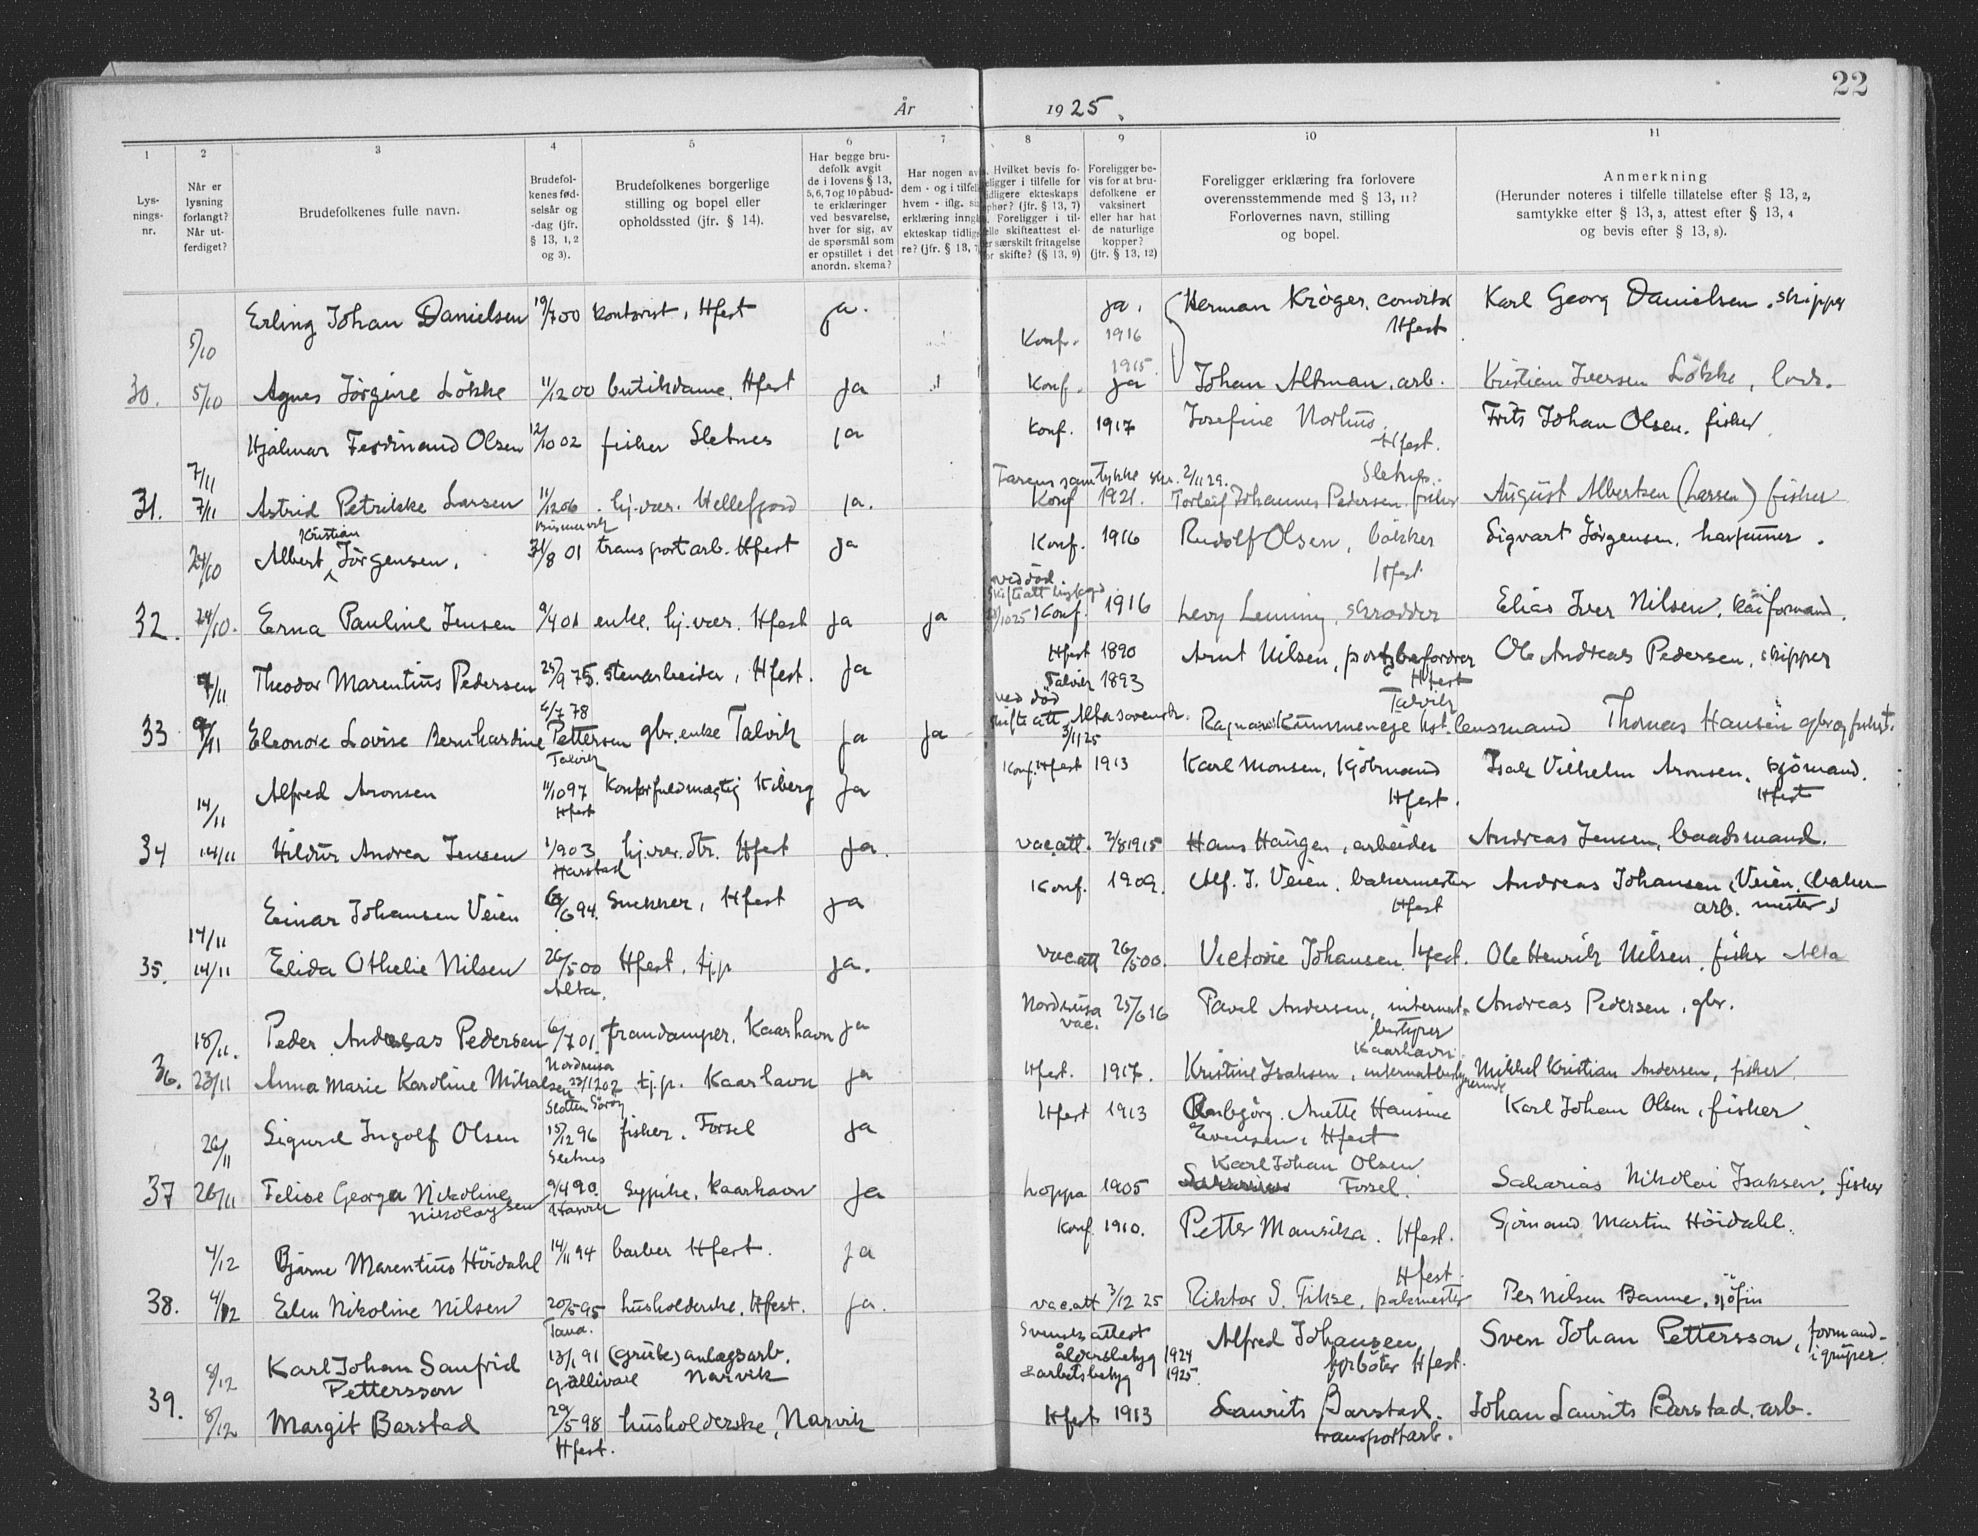 22
År 1925.
1 2 3 4 5 6 7 8 9 10 11
Lys-
nings-
nr.
Når er
lysning
forlangt?
Når ut-
ferdiget?
Brudefolkenes fulle navn.
Brudefol-
kenes fød-
selsår og
-dag (jfr.
§ 13, 1, 2
og 3).
Brudefolkenes borgerlige
stilling og bopel eller
opholdssted (jfr. § 14).
Har begge bru-
defolk avgit
de i lovens § 13,
5, 6, 7 og 10 påbud-
te erklæringer
ved besvarelse,
hver for sig, av
de spørsmål som
er opstillet i det
anordn. skema?
Har nogen av
dem - og i tilfelle
hvem - iflg. sin
erklæring inngå
ekteskap tidlige
re? (jfr. § 13, 7
Hvilket bevis fo-
eligger i tilfelle for
idligere ekteskaps
ophør? (jfr. § 13, 7)
Foreligger i til-
elle skifteattest el-
er særskilt fritagelse
or skifte? (§ 13, 9)
Foreligger be-
vis for at bru-
defolkene er
vaksinert
eller har hat
de naturlige
kopper?
(jfr. § 13, 12)
Foreligger erklæring fra forlovere
overensstemmende med § 13, 11?
Forlovernes navn, stilling
og bopel.
Anmerkning
(Herunder noteres i tilfelle tillatelse efter § 13, 2,
samtykke efter § 13, 3, attest efter § 13, 4
og bevis efter § 13, 8).
5/10 Erling Johan Danielsen 19/7 00 kontorist, Hfest ja. Konf. ja. 1916 Herman Krøger, conditor Hfest Karl Georg Danielsen, skipper
30. 5/10 Agnes Jörgine Lökke 11/12 00 butikdame, Hfest ja Konf. 1915 ja Johan Altman, arb. Kristian Iversen Lökke, lods.
7/11 Hjalmar Ferdinand Olsen 12/10 02 fisker Sletnes ja Konf. 1917 Josefine Norhus Hfest. Frits Johan Olsen, fisker.
31. 7/11 Astrid Petrikke Larsen 11/12 06 hj.vær. Hellefjord ja. samtykke Konf 1921. Torleif Johannes Pedersen, fisker Sletnes. August Albertsen (Larsen) fisker
24/10 Albert Kristian Jörgensen. 31/8 01 transportarb. Hfest ja Konf. 1916 Rudolf Olsen, bökker Hfest Sigvart Jörgensen, harpuner.
32. 24/10. Erna Pauline Jensen 9/4 01 enke, hj.vær. Hfest ja ja ved död Konf. 1916 Levy Leming, skrædder Elias Iver Nilsen, kaiformand.
7/11 Theodor Marentius Pedersen 25/9 75. stenarbeider, Hfest. ja Hfest 1890 Arnt Nilsen, postbefordrer Hfest Ole Andreas Pedersen, skipper
33 9/11 Eleonore Lovise Bernhardine Pettersen 4/7 78 Talvik gbr. enke Talvik ja ja Talvik 1893 ved död skifteatt. Alta sorenskr. 3/11 25 Ragnar Kummeneje kst. lensmand Talvik Thomas Hansen gbr og fisker.
14/11 Alfred Aronsen 11/10 97 Hfest Kontorfuldmægtig Kiberg ja Konf. Hfest 1913 Karl Monsen, Kjöbmand Hfest. Isak Vilhelm Aronsen, sjömand. Hfest
34 14/11 Hildur Andrea Jensen 1/9 03 Harstad hj.vær. dtr. Hfest ja. vac.att. 2/8 1915 Hans Haugen, arbeider Andreas Jensen, baadsmand.
14/11 Einar Johansen Veien 6/6 94. Snekker, Hfest ja Konf. 1909. Alf. J. Veien, bakermester Hfest Andreas Johansen Veien, (baker arb. mester)
35. 14/11 Elida Othelie Nilsen 26/5 00 Alta. Hfest, tjp ja. vac att 26/5 00. Victorie Johansen Hfest. Ole Henrik Nilsen, fisker Alta
18/11. Peder Andreas Pedersen 6/7 01 Nordreisa trandamper, Kaarhavn ja Nordreisa vac. 25/6 16 Pavel Andersen, internat-bestyrer Kaarhavn. Andreas Pedersen, gbr.
36. 23/11 Anna Marie Karoline Mikalsen 23/12 02 Slotten Söröy tj.p. Kaarhavn ja Hfest. 1917. Kristine Isaksen, internatbestyrerinde Mikkel Kristian Andersen, fisker.
26/11 Sigurd Ingolf Olsen 15/12 96 Sletnes fisker, Forsöl ja Hfest 1913 Anette Hansine Evensen, Hfest Karl Johan Olsen, fisker.
37 26/11 Felise Georga Nikoline Nikolaysen 9/4 90. Hasvik Sypike, Kaarhavn ja Loppa 1905 Karl Johan Olsen Forsøl. Sakarias Nikolai Isaksen, fisker
4/12 Bjarne Marentius Höidahl 14/11 94 barber Hfest. ja Konf 1910. Petter Mansika. Hfest. Sjömand Martin Höidahl.
38. 4/12 Elen Nikoline Nilsen 20/5 95 Tana. husholderske, Hfest. ja. vac.att 3/12 25 Hfest. Riktor S. Fikse, pakmester Per Nilsen Banne, sjöfin
8/12 Karl Johan Sanfrid Pettersson 13/1 91 Gällivare (grube) anlægsarb. Narvik Svensk attest åldersbetyg 1924 & arbetsbetyg 1925. Alfred Johansen fyrböter Hfest. Sven Johan Pettersson, formand i gruper.
39. 8/12 Margit Barstad 29/5 98 Hfest. husholderske, Narvik Hfest 1913 Laurits Barstad. transportarb. Johan Laurits Barstad. arb.